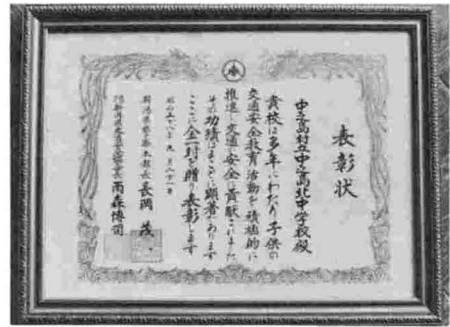 表彰状
中之島村立中之島北中学校殿
貴校は多年にわたり子供の
交通安全教育活動を積極的に
推進し交通安全に貢献されました
その功績はまことに顕著であります
ここに金一封を贈り表彰します
昭和五十八年九月二十一日
新潟県警察本部長 長岡 茂
新潟県交通安全協会長 雨森博司